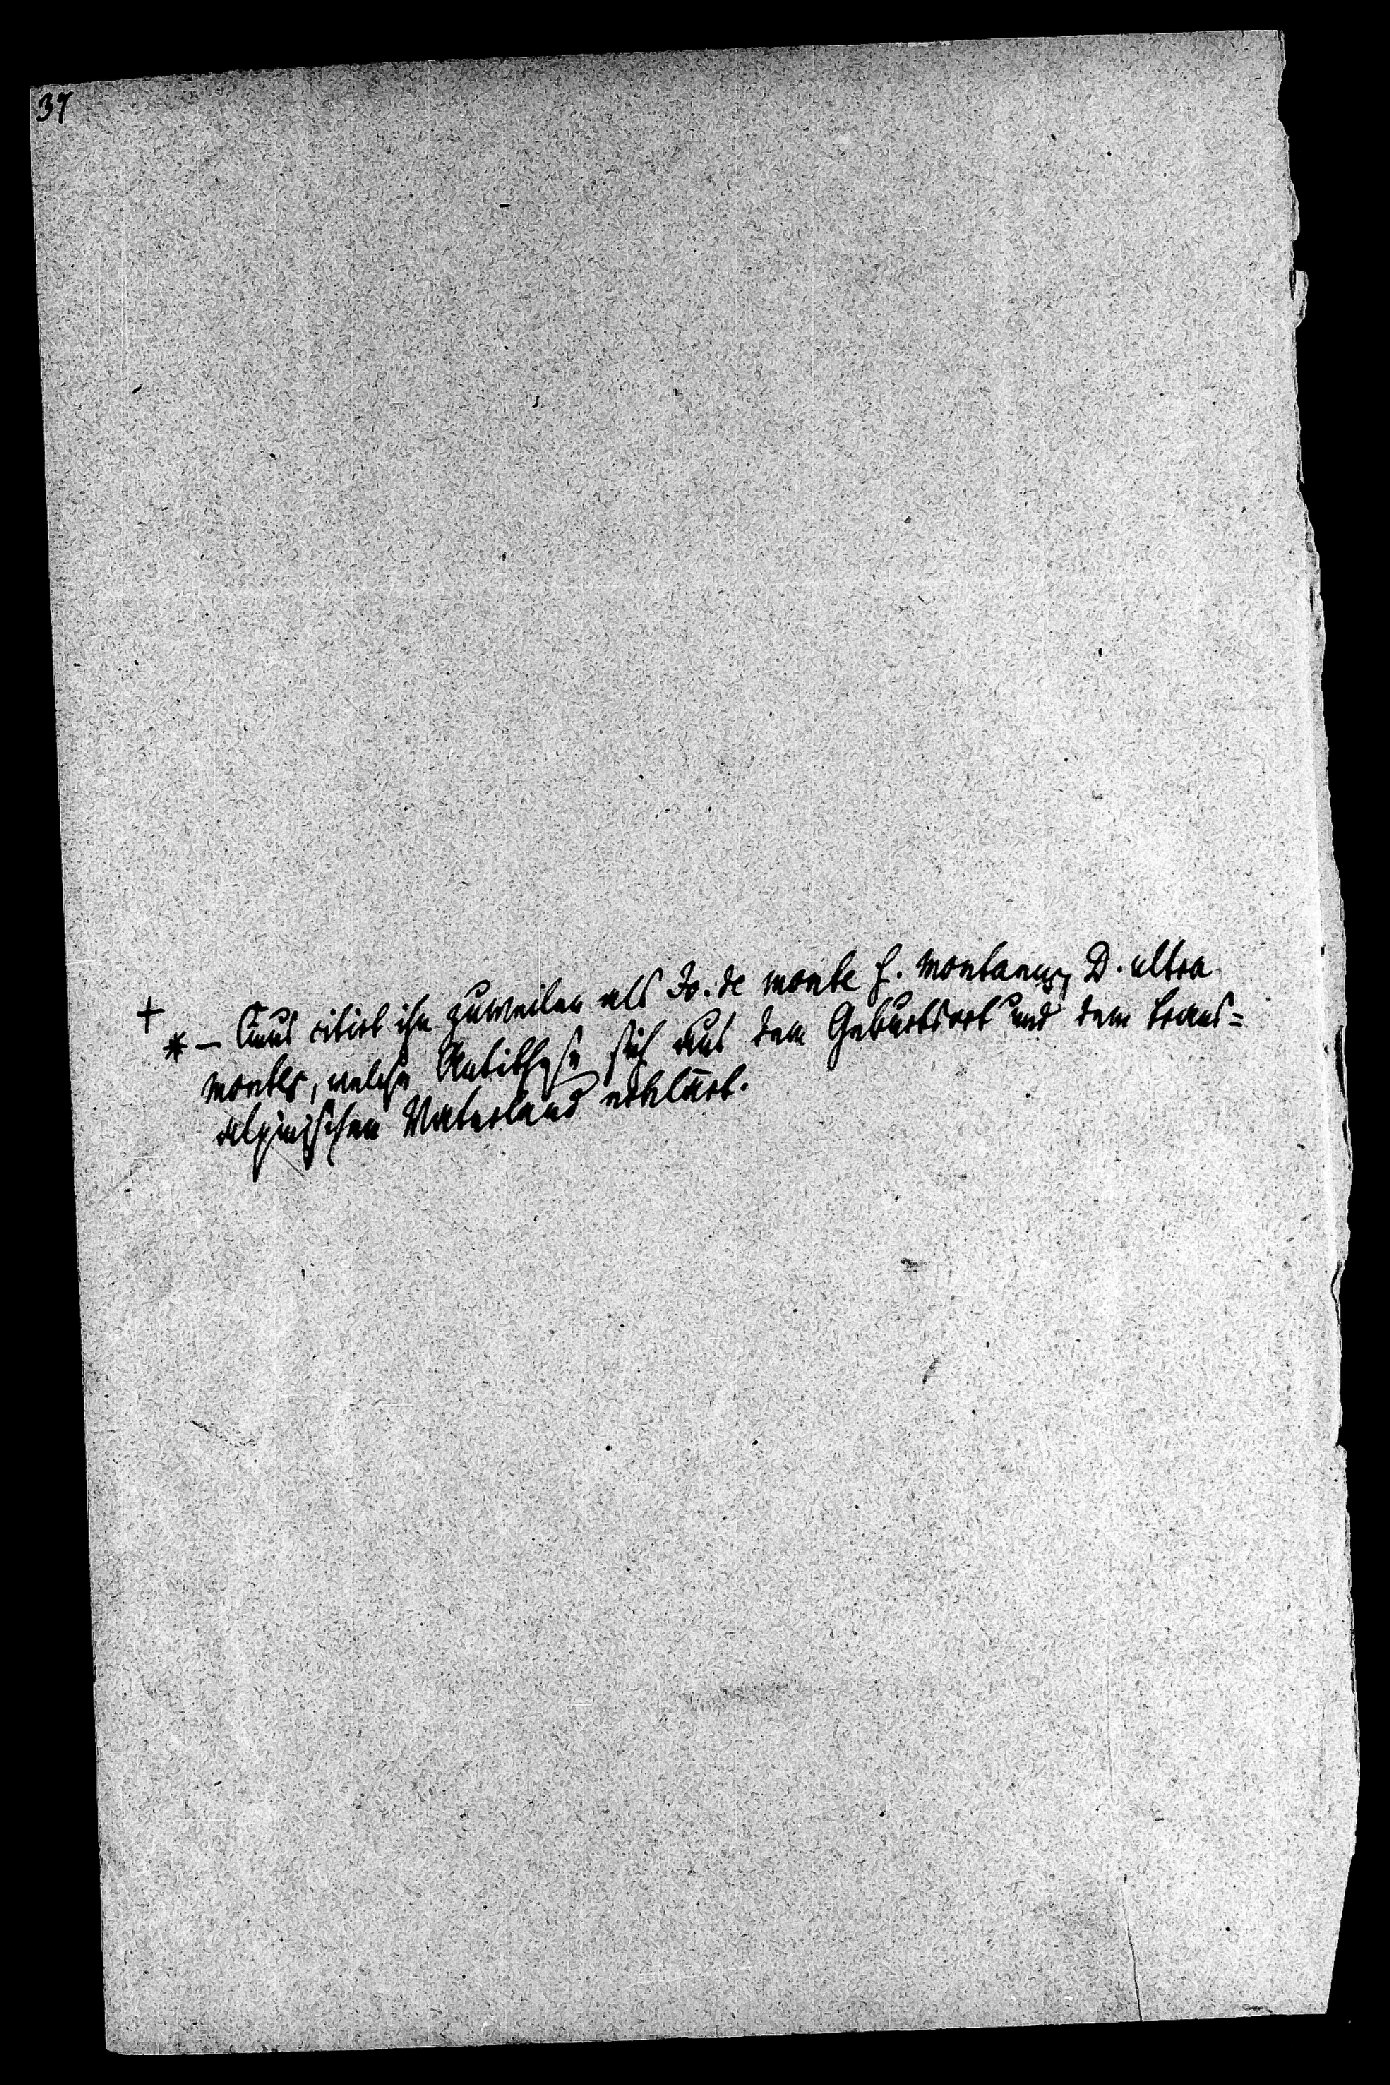 37
+
* – Cinus citirt ihn zuweilen als Jo. de monte s. montanus, D. ultra
montes, welche Antithese sich aus dem Geburtsort und dem trans=
alpinischen Vaterland erklärt.